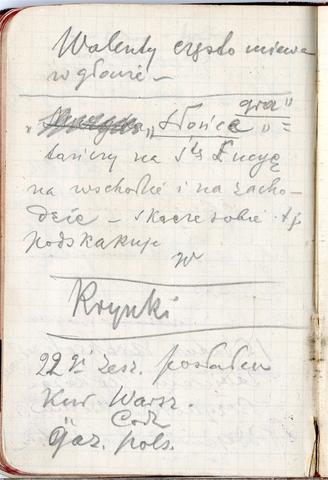 Walenty często miewa
w głowie –
gra"
„Słońce" =
tańczy na Stę Łucyę
na wschodzie i na zacho-
dzie – skacze sobie t.j.
podskakuje
w
Krynki
22 gi zesz. posłałem
Kur Warsz.
Codz
Gaz. pols.